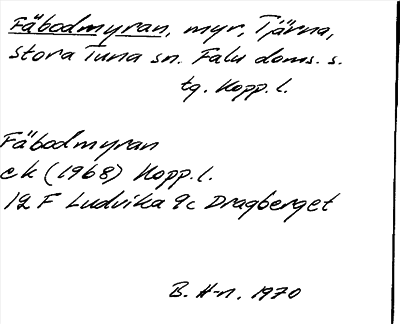 Fäbodmyran, myr, Tjärna,
Stora Tuna sn. Falu doms. s.
tg. Kopp. l.
Fäbodmyran
ek (1968) Kopp. l.
12 F Ludvika 9c Dragberget
B. H-n. 1970